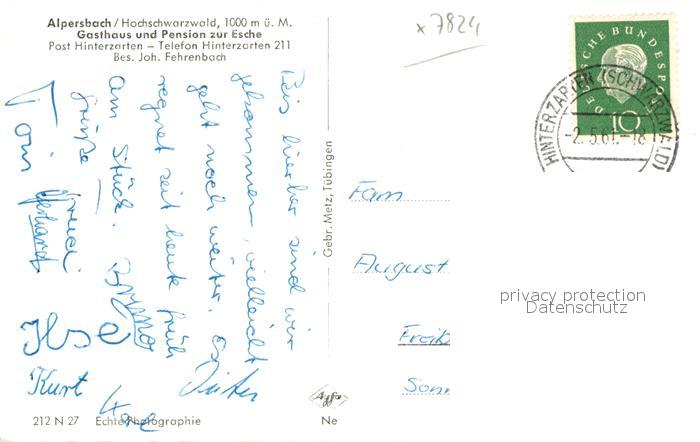 Alpersbach / Hochschwarzwald, 1000 m ü. M.
Gasthaus und Pension zur Esche
Post Hinterzarten – Telefon Hinterzarten 211
Bes. Joh. Fehrenbach
x 7824
Bis hierher sind wir
gekommen, vielleicht
geht noch weiter. Es
regnet seit heute früh
am Stück.
Grüße
Gerhard
Bruno
Ilse
Kurt
Dieter
212 N 27 Echte Photographie
Gebr. Metz, Tübingen
Agfa
Ne
Fam
August
Freib
Sonn
DEUTSCHE BUNDESPO
10
HINTERZARTEN (SCHWARZWALD)
-2.5.61.-18
privacy protection
Datenschutz